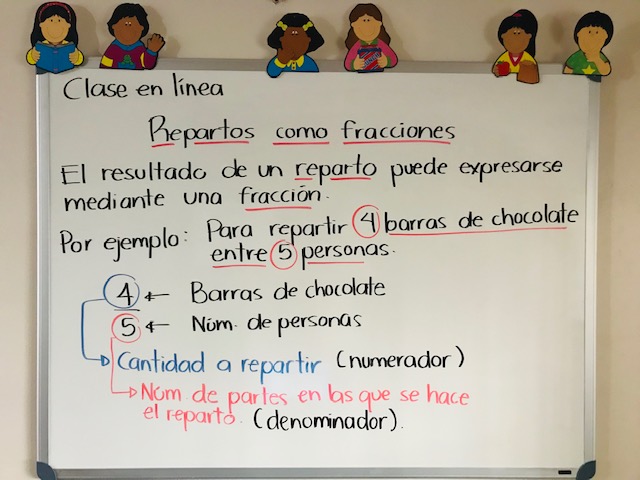 Clase en línea
Repartos como fracciones
El resultado de un reparto puede expresarse
mediante una fracción.
Por ejemplo: Para repartir 4 barras de chocolate
entre 5 personas.
4 ← Barras de chocolate
5 ← Núm. de personas
Cantidad a repartir (numerador)
Núm. de partes en las que se hace
el reparto. (denominador).